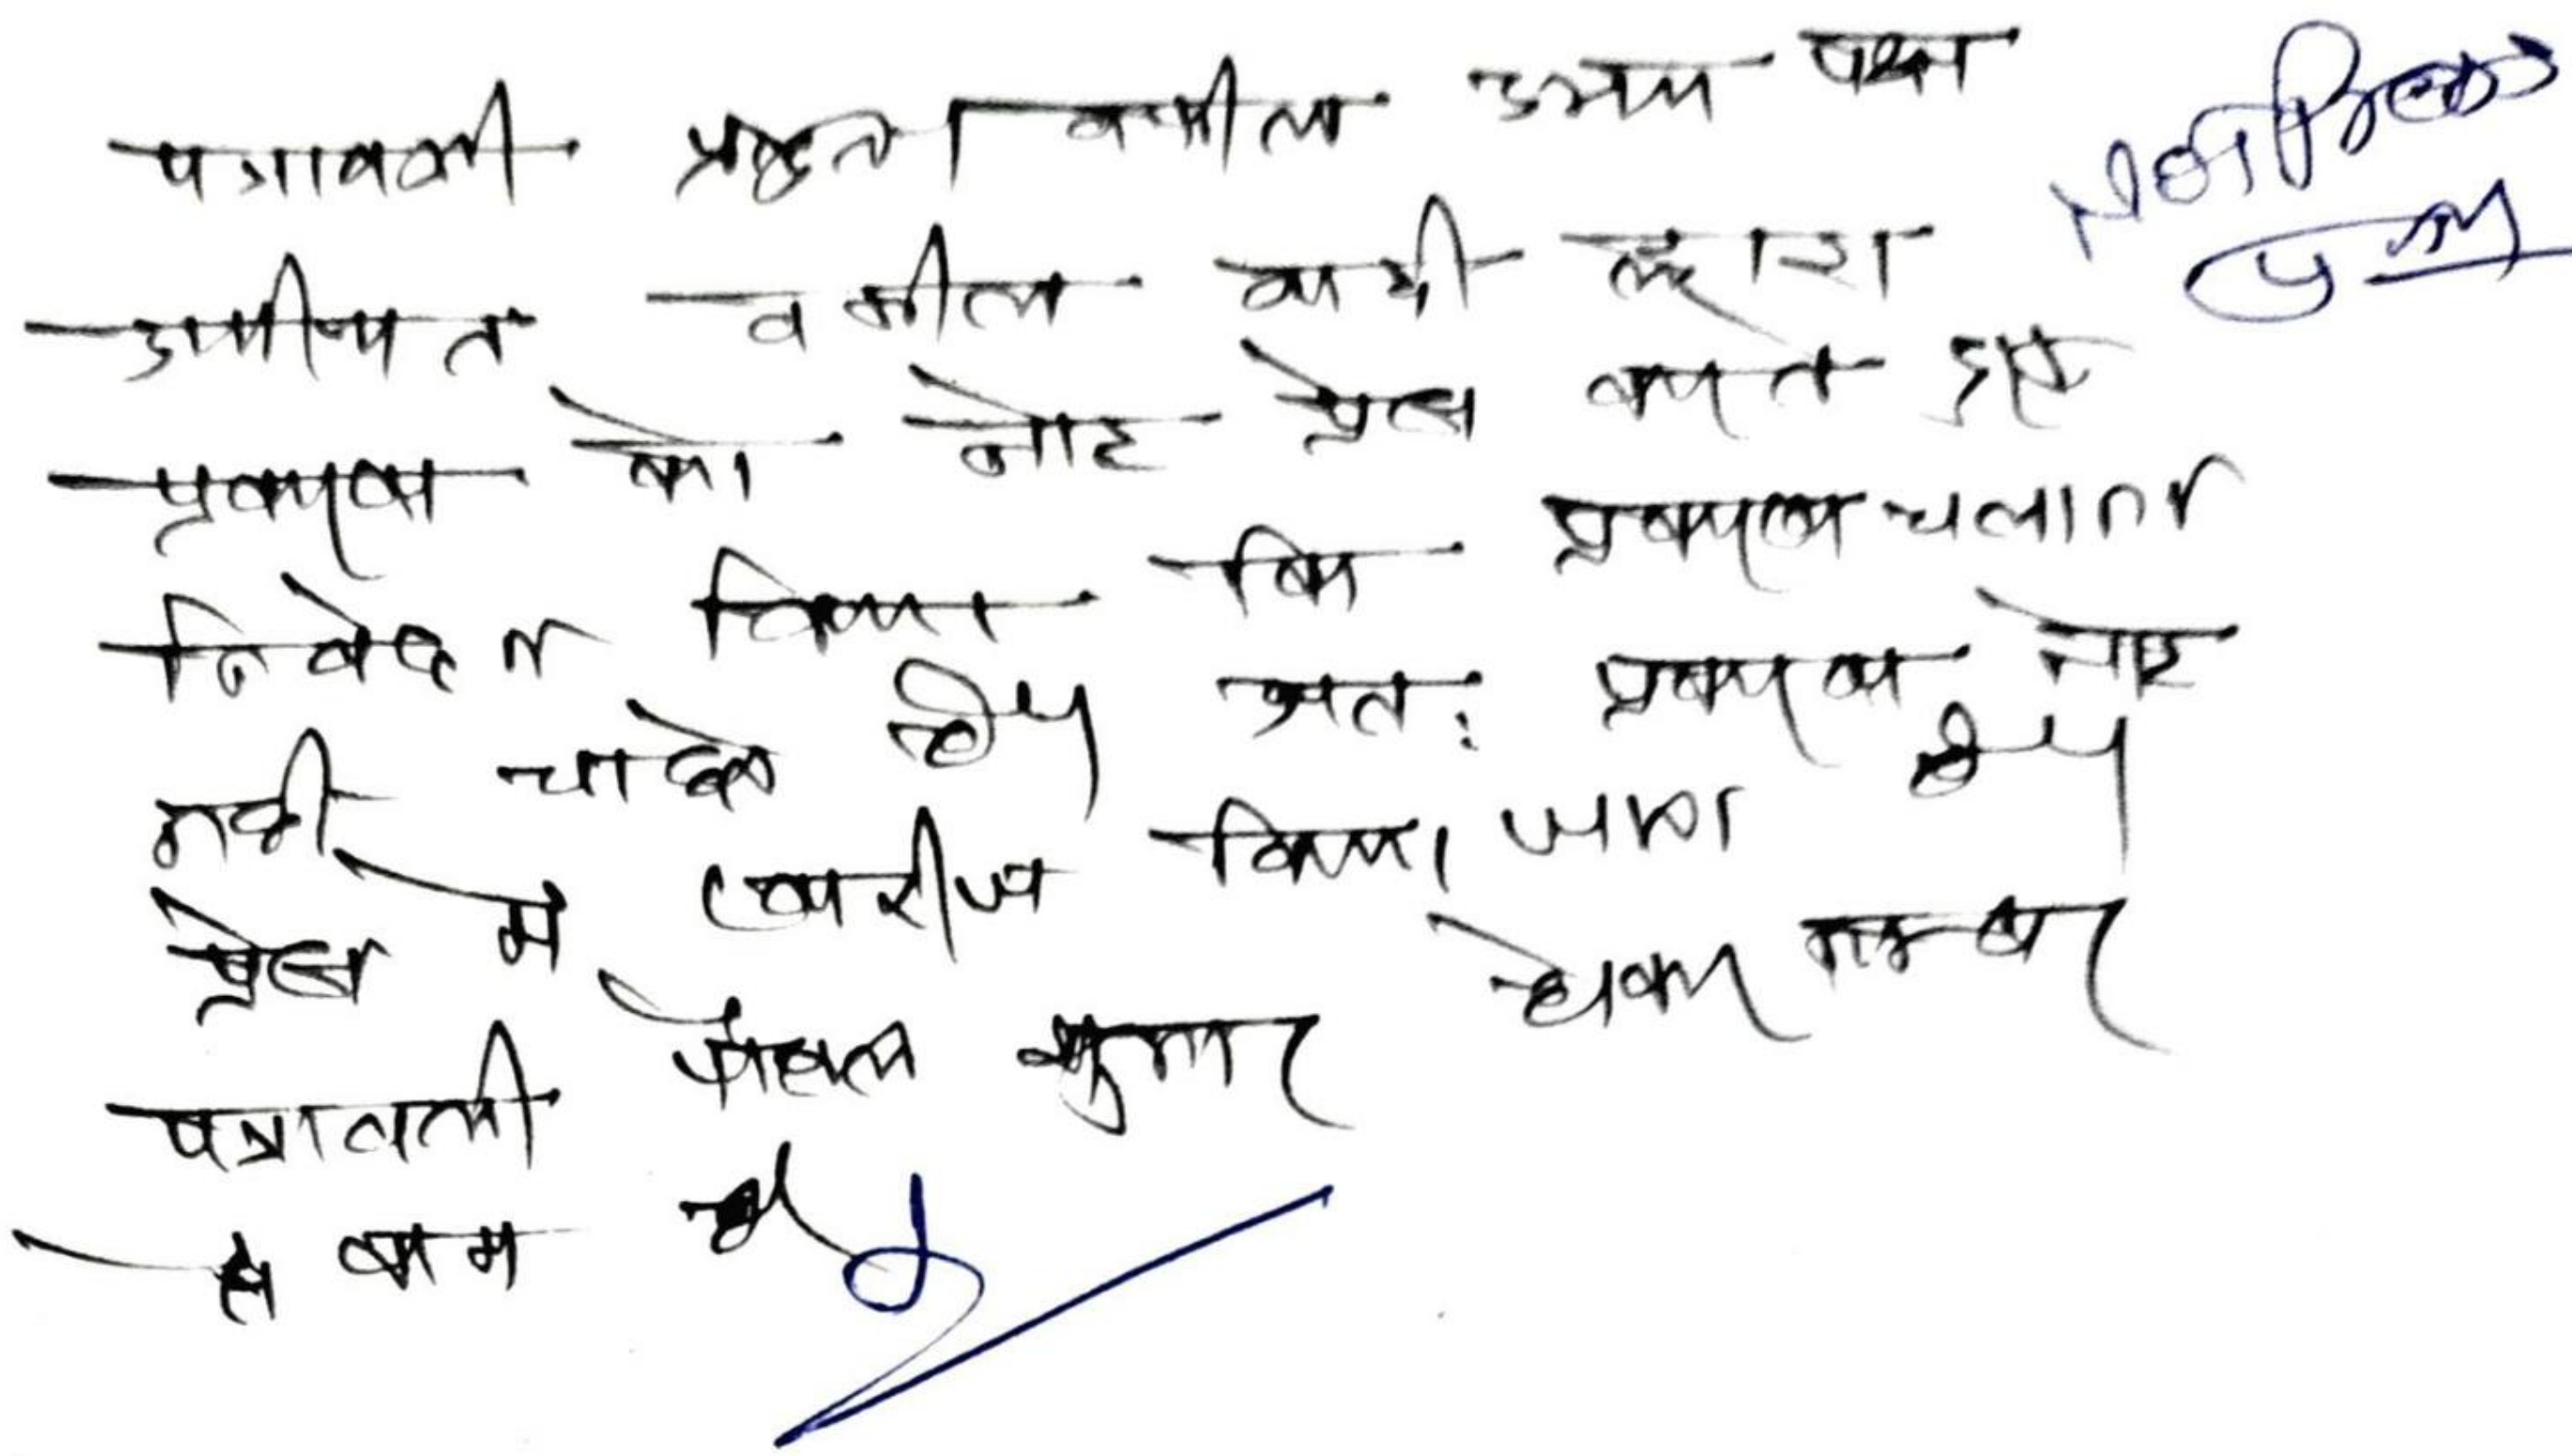 पत्रावली प्रस्तुत। वकील उभय पक्ष
उपस्थित वकील वादी द्वारा
प्रकरण को नोट प्रेस करते हुए
निवेदन किया कि प्रकरण चलाना
नही चाहते है। अतः प्रकरण नोट
प्रेस में खारीज किया जाता है।
पत्रावली फैसल शुमार होकर नम्बर
से कम हो